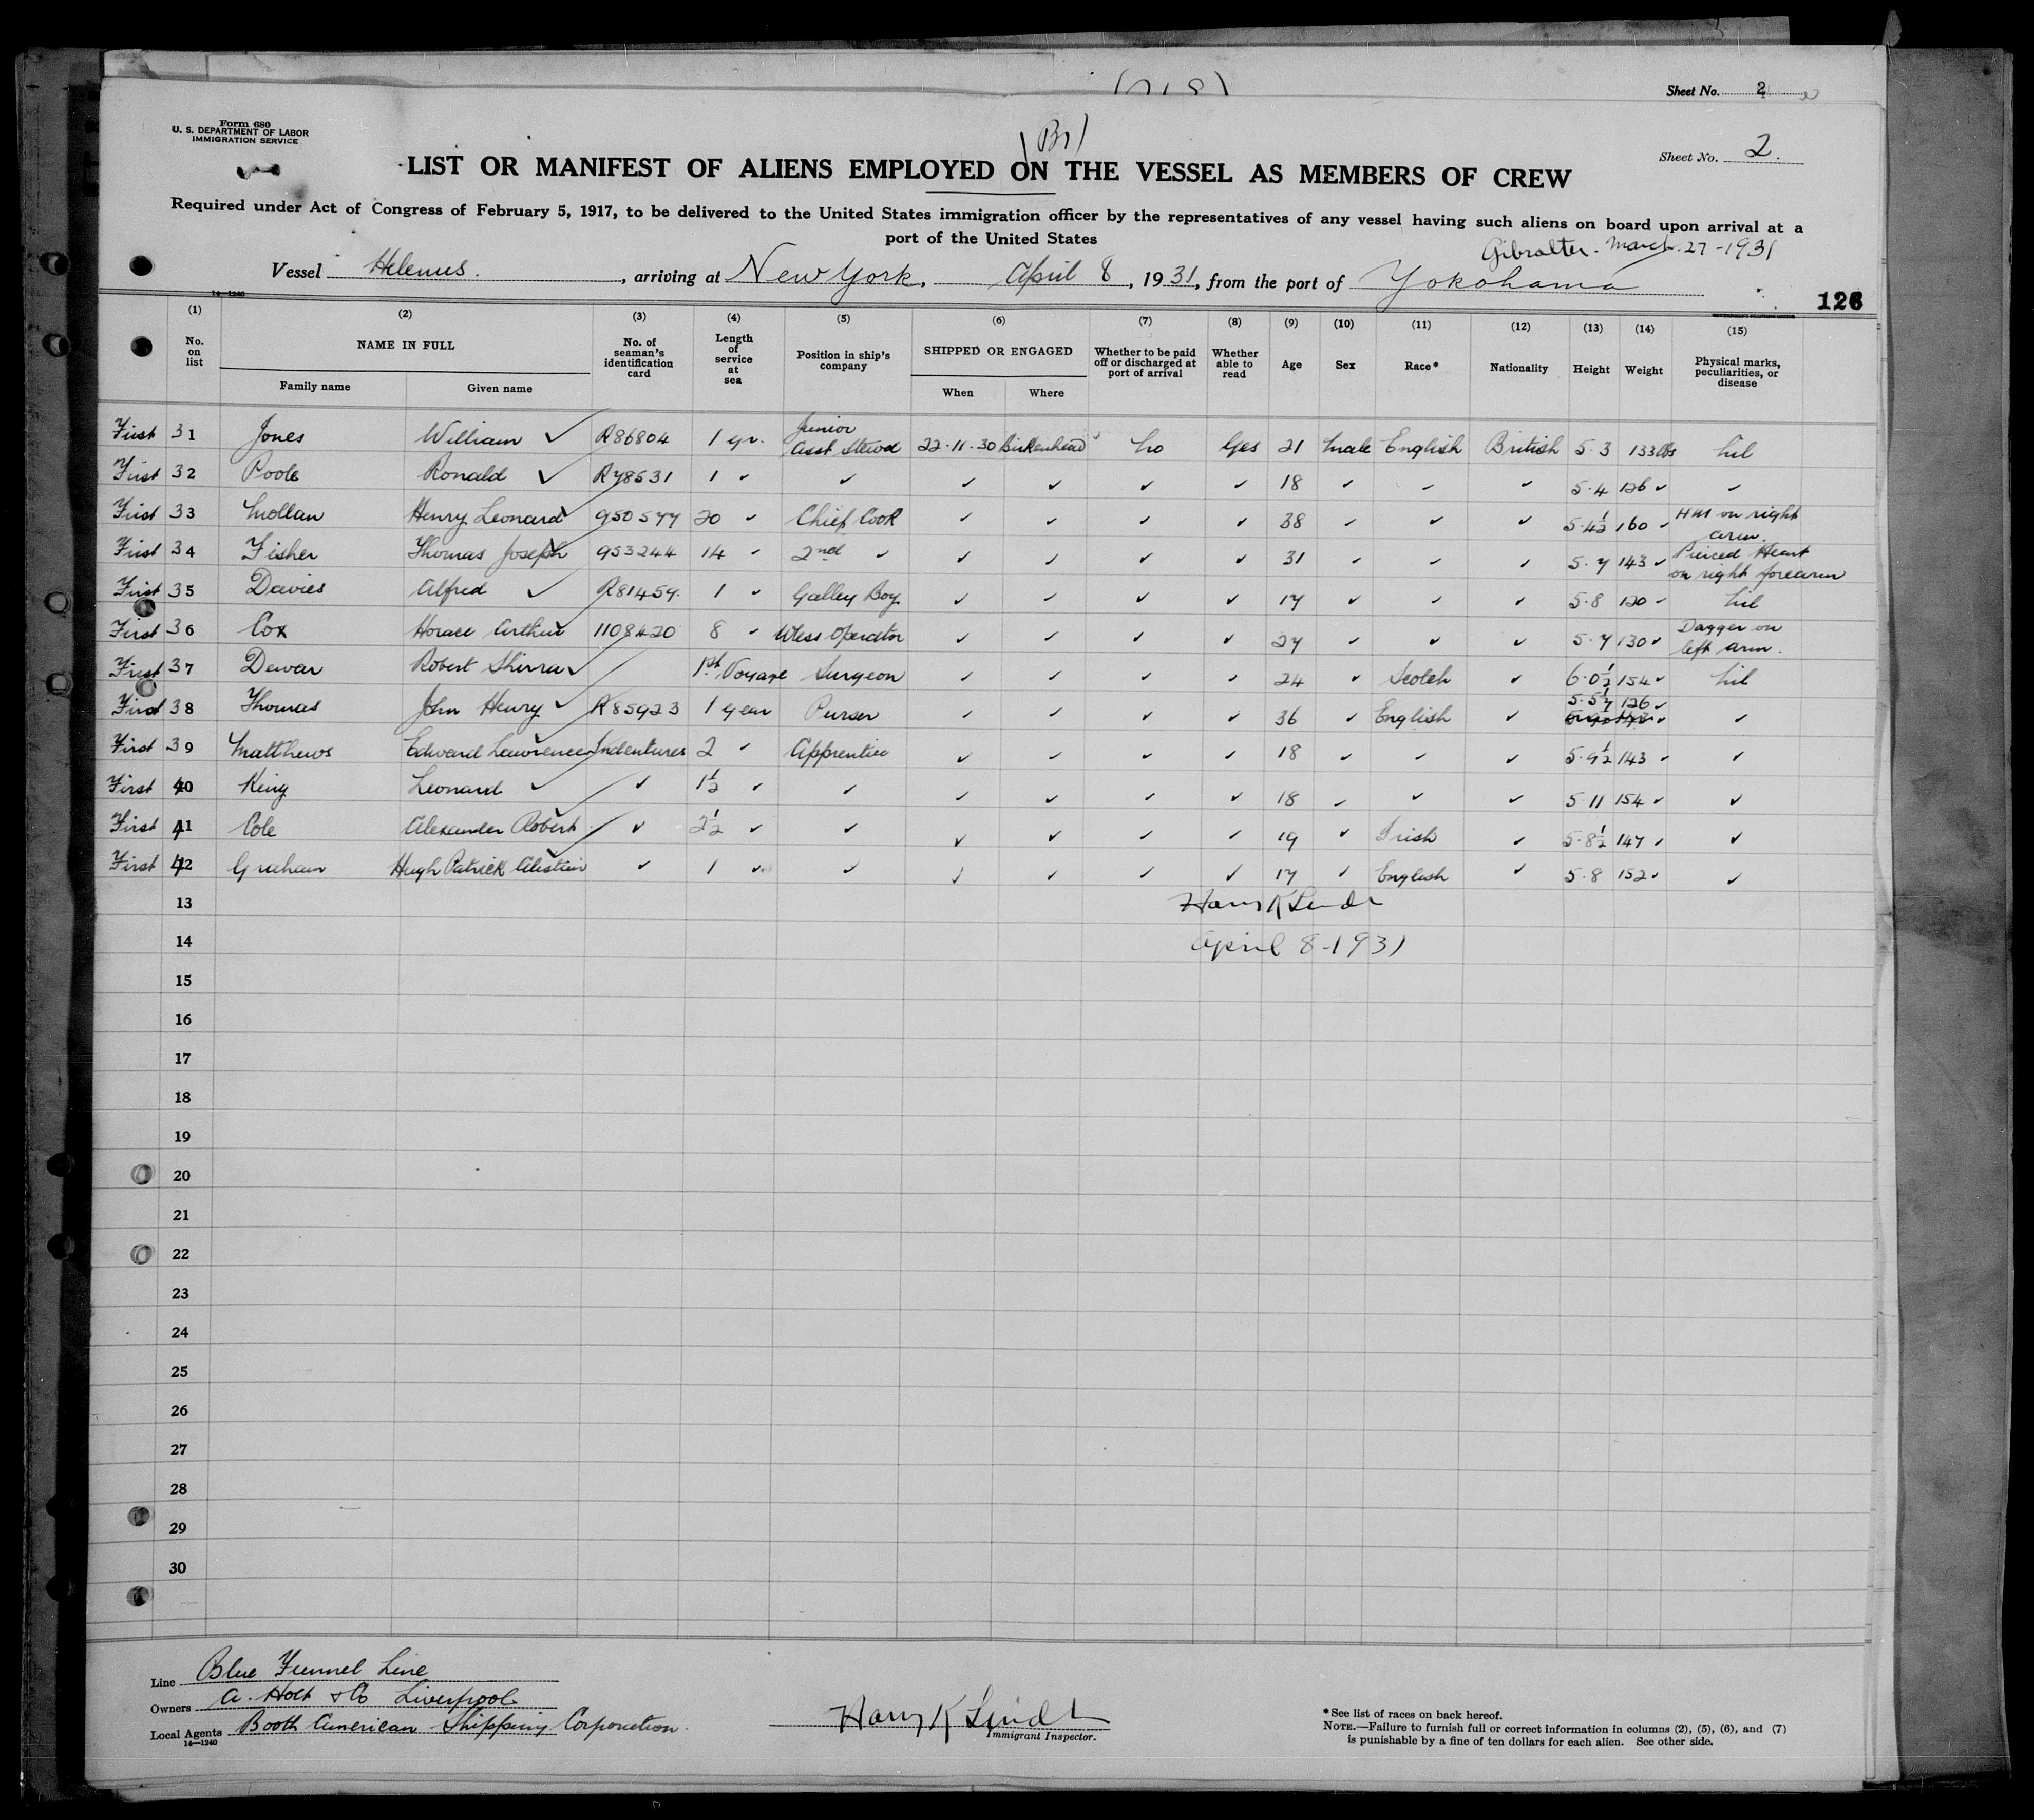 Sheet No. 2
Form 680
U. S. DEPARTMENT OF LABOR
IMMIGRATION SERVICE
(Br)
Sheet No. 2.
LIST OR MANIFEST OF ALIENS EMPLOYED ON THE VESSEL AS MEMBERS OF CREW
Required under Act of Congress of February 5, 1917, to be delivered to the United States immigration officer by the representatives of any vessel having such aliens on board upon arrival at a
port of the United States
Gibralter - March 27-1931
Vessel Helenus. , arriving at New York, April 8, 1931, from the port of Yokohama
14—1240
126
(1) (2) (3) (4) (5) (6) (7) (8) (9) (10) (11) (12) (13) (14) (15)
No. on list NAME IN FULL Family name Given name No. of seaman's identification card Length of service at sea Position in ship's company SHIPPED OR ENGAGED When Where Whether to be paid off or discharged at port of arrival Whether able to read Age Sex Race* Nationality Height Weight Physical marks, peculiarities, or disease
First 31 Jones William ✓ R86804 1 yr. Junior Asst Stewd 22-11-30 Birkenhead No Yes 21 Male English British 5-3 133lbs Nil
First 32 Poole Ronald ✓ R78631 1 ✓ ✓ ✓ ✓ ✓ ✓ 18 ✓ ✓ ✓ 5-4 126 ✓ ✓
First 33 Mollan Henry Leonard ✓ 950577 20 ✓ Chief Cook ✓ ✓ ✓ ✓ 38 ✓ ✓ ✓ 5-4½ 160 ✓ on right arm.
First 34 Fisher Thomas Joseph ✓ 953244 14 ✓ 2nd ✓ ✓ ✓ ✓ ✓ 31 ✓ ✓ ✓ 5-7 143 ✓ Pierced Heart on right forearm
First 35 Davies Alfred ✓ R81459. 1 ✓ Galley Boy ✓ ✓ ✓ ✓ 17 ✓ ✓ ✓ 5-8 120 ✓ Nil
First 36 Cox Horace Arthur ✓ 1108420 8 ✓ Wless Operator ✓ ✓ ✓ ✓ 27 ✓ ✓ ✓ 5-7 130 ✓ Dagger on left arm.
First 37 Dewar Robert Shirra ✓ 1st Voyage Surgeon ✓ ✓ ✓ ✓ 24 ✓ Scotch ✓ 6-0½ 154 ✓ Nil
First 38 Thomas John Henry ✓ R85923 1 year Purser ✓ ✓ ✓ ✓ 36 ✓ English ✓ 126 ✓ ✓
First 39 Matthews Edward Lawrence Indentures 2 ✓ Apprentice ✓ ✓ ✓ ✓ 18 ✓ ✓ ✓ 5-9½ 143 ✓ ✓
First 40 King Leonard ✓ ✓ 1½ ✓ ✓ ✓ ✓ ✓ ✓ 18 ✓ ✓ ✓ 5 11 154 ✓ ✓
First 41 Cole Alexander Robert ✓ ✓ 2½ ✓ ✓ ✓ ✓ ✓ ✓ 19 ✓ Irish ✓ 5-8½ 147 ✓ ✓
First 42 Graham Hugh Patrick Alistair ✓ 1 ✓ ✓ ✓ ✓ ✓ ✓ 17 ✓ English ✓ 5-8 152 ✓ ✓
13 Harry K Lindt
14 April 8-1931
15
16
17
18
19
20
21
22
23
24
25
26
27
28
29
30
Line Blue Funnel Line
Owners A. Holt & Co Liverpool
Local Agents Booth American Shipping Corporation.
14—1240
Harry K Lindt
Immigrant Inspector.
*See list of races on back hereof.
NOTE.—Failure to furnish full or correct information in columns (2), (5), (6), and (7)
is punishable by a fine of ten dollars for each alien. See other side.